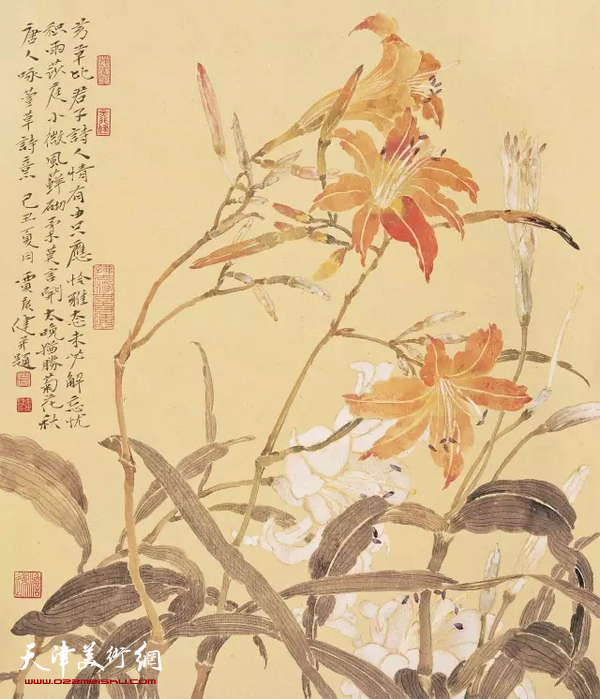 芳草比君子詩人情有由只應怜雅态未必解忘忧
积雨莎庭小微風蘚砌柔莫言開太晚猶勝菊花秋
唐人咏萱草詩意 己丑夏日 賈廣健并題
天津美術網
www.022meishu.com